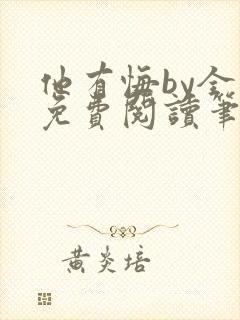 他有悔by金
免費閱讀筆
黃炎培